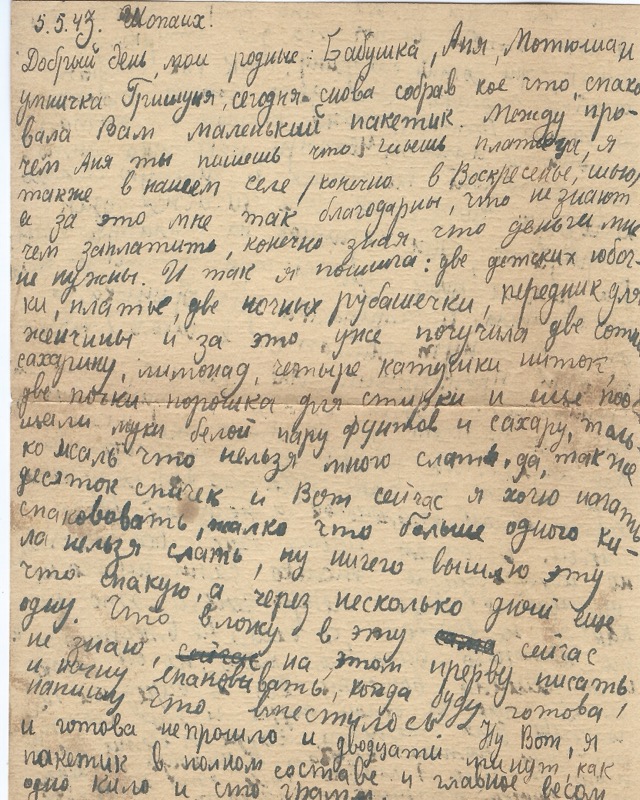 5.5.43. Шопаих!
Добрый день, мои родные: Бабушка, Аня, Мотюшан
умничка Гришуня, сегодня снова собрав кое что, спако
вала Вам маленький пакетик. Между про-
чем Аня ты пишешь что шьешь платья, я
также в нашем селе, конечно в Воскресенье, шью,
а за это мне так благодарны, что не знают
чем заплатить, конечно зная, что деньги мне
не нужны. И так я пошила: две детских юбоч-
ки, платье, две ночных рубашечки, передник для
женчины и за это уже получила две сотни
сахарину, лимонад, четыре катушки ниток,
две пачки порошка для стирки и еще поо-
щали муки белой пару фунтов и сахару, толь-
ко жаль что нельзя много слать, да, также
десяток спичек и Вот сейчас я хочу начать
спакововать, жалко что больше одного ки-
ла нельзя слать, ну ничего вышлю эту
что спакую, а через несколько дней еще
одну. Что вложу в эту сейчас
не знаю, на этом прерву писать
и начну спаковывать, когда буду готова,
напишу что вместилось. Ну Вот, я
и готова непрошло и двадцати минут, как
пакетик в полном составе и главное весом
одно кило и сто грамм.